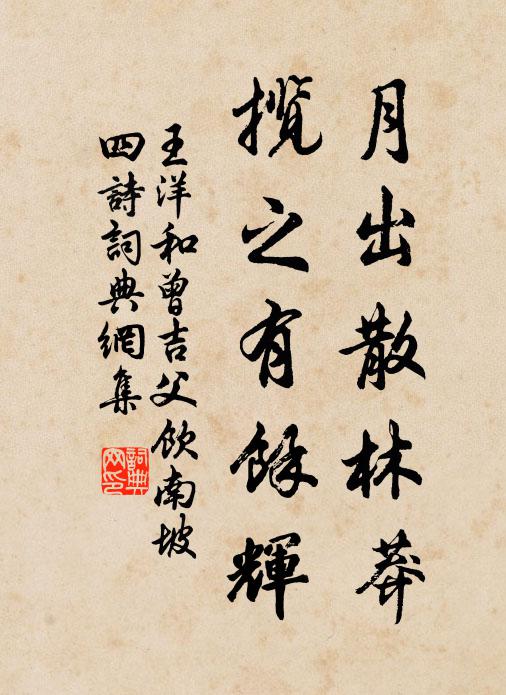 月出散林莽
攬之有餘輝
王洋和曾吉父飲南坡
四詩詞典網集
詞典
网印